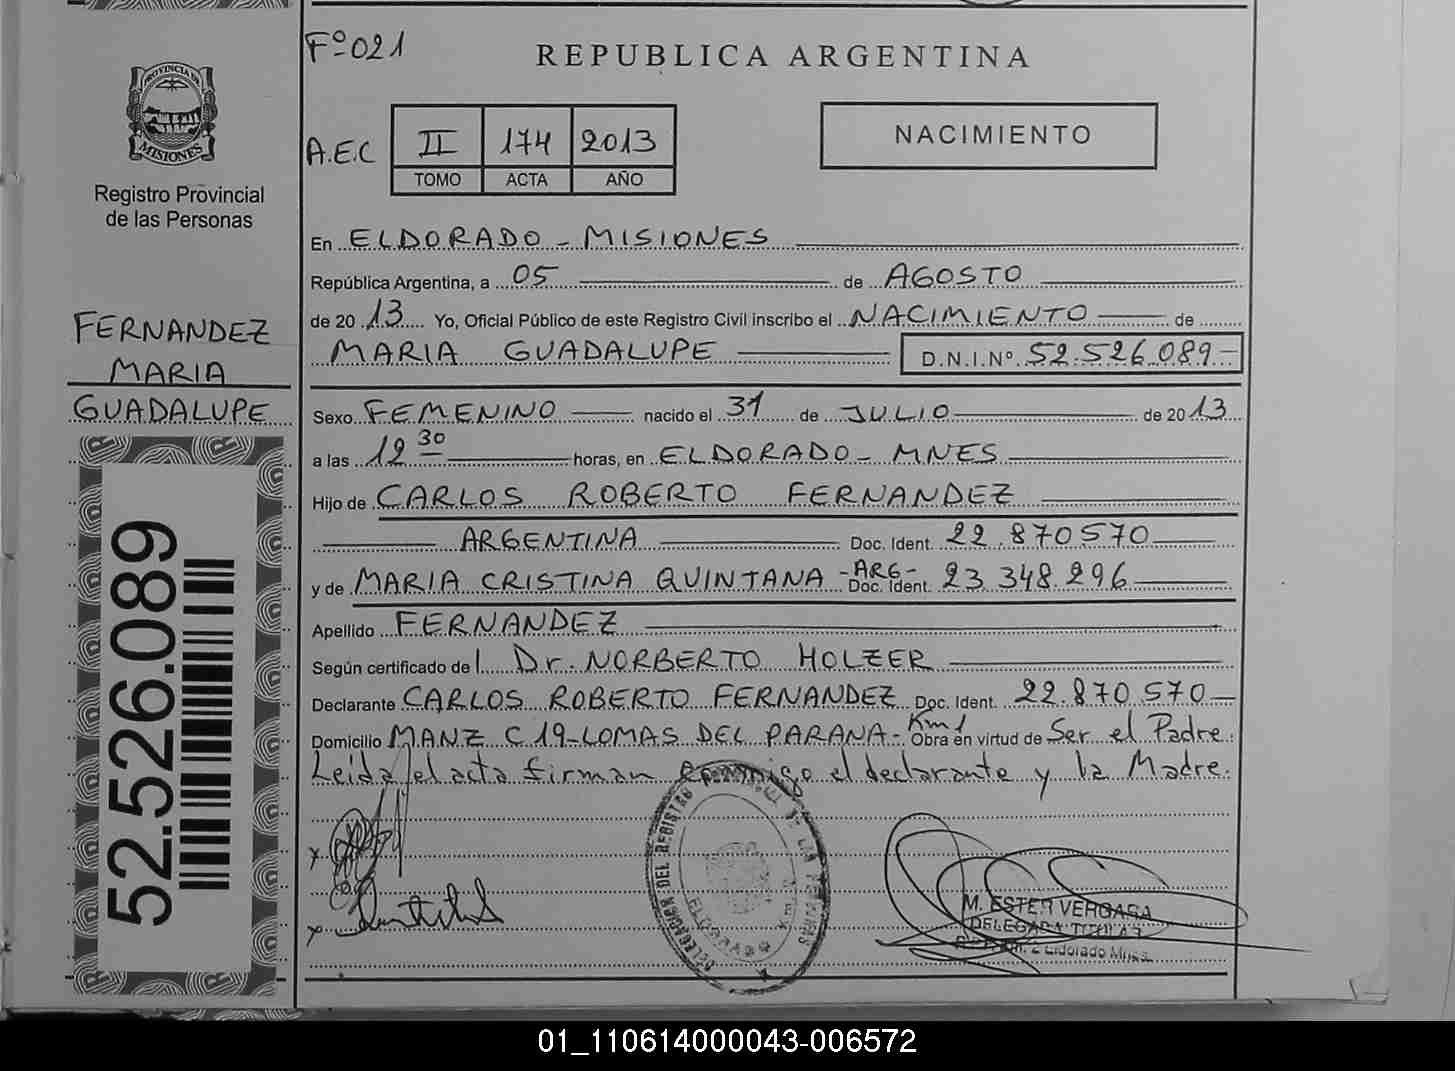 Fº 021
REPUBLICA ARGENTINA
PROVINCIA DE
MISIONES
Registro Provincial
de las Personas
A.E.C
II 174 2013
TOMO ACTA AÑO
NACIMIENTO
FERNANDEZ
MARIA
GUADALUPE
52.526.089
En ELDORADO - MISIONES
República Argentina, a 05 de AGOSTO
de 2013 Yo, Oficial Público de este Registro Civil inscribo el NACIMIENTO de
MARIA GUADALUPE D.N.I.Nº 52.526.089-
Sexo FEMENINO nacido el 31 de JULIO de 2013
a las 12 30 horas, en ELDORADO - MNES
Hijo de CARLOS ROBERTO FERNANDEZ
ARGENTINA Doc. Ident. 22.870570
y de MARIA CRISTINA QUINTANA -ARG- Doc. Ident. 23.348.296
Apellido FERNANDEZ
Según certificado del Dr. NORBERTO HOLZER
Declarante CARLOS ROBERTO FERNANDEZ Doc. Ident. 22.870.570
Domicilio MANZ C 19-LOMAS DEL PARANA- Km 1 Obra en virtud de Ser el Padre.
Leida el acta firman conmigo el declarante y la Madre.
DELEGACION DEL REGISTRO DE LAS PERSONAS
ELDORADO
M. ESTER VERGARA
DELEGADA TITULAR
Eldorado Mnes.
01_110614000043-006572